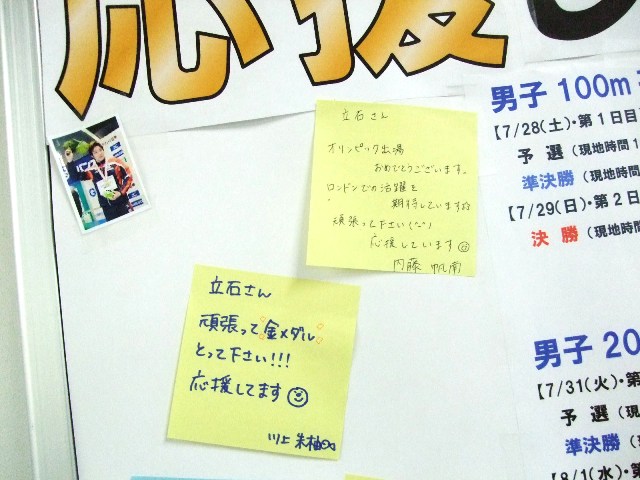 応援し
立石さん
オリンピック出場
おめでとうございます。
ロンドンでの活躍を
期待しています
頑張って下さい(^^)
応援しています
内藤 帆南
立石さん
頑張って金メダル
とって下さい!!!
応援してます
川上 朱柚
男子 100m
【7/28(土)・第1日目
予選 (現地時間 1
準決勝 (現地時間
【7/29(日)・第2日
決勝 (現地時間
男子 20
【7/31(火)・第
予選 (現
準決勝 (
【8/1(水)・第